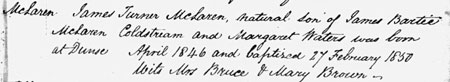 McLaren James Turner McLaren, natural son of James Bartie
McLaren Coldstream and Margaret Waters was born
at Dunse April 1846 and baptised 27 February 1850
Wits Mrs Bruce & Mary Brown